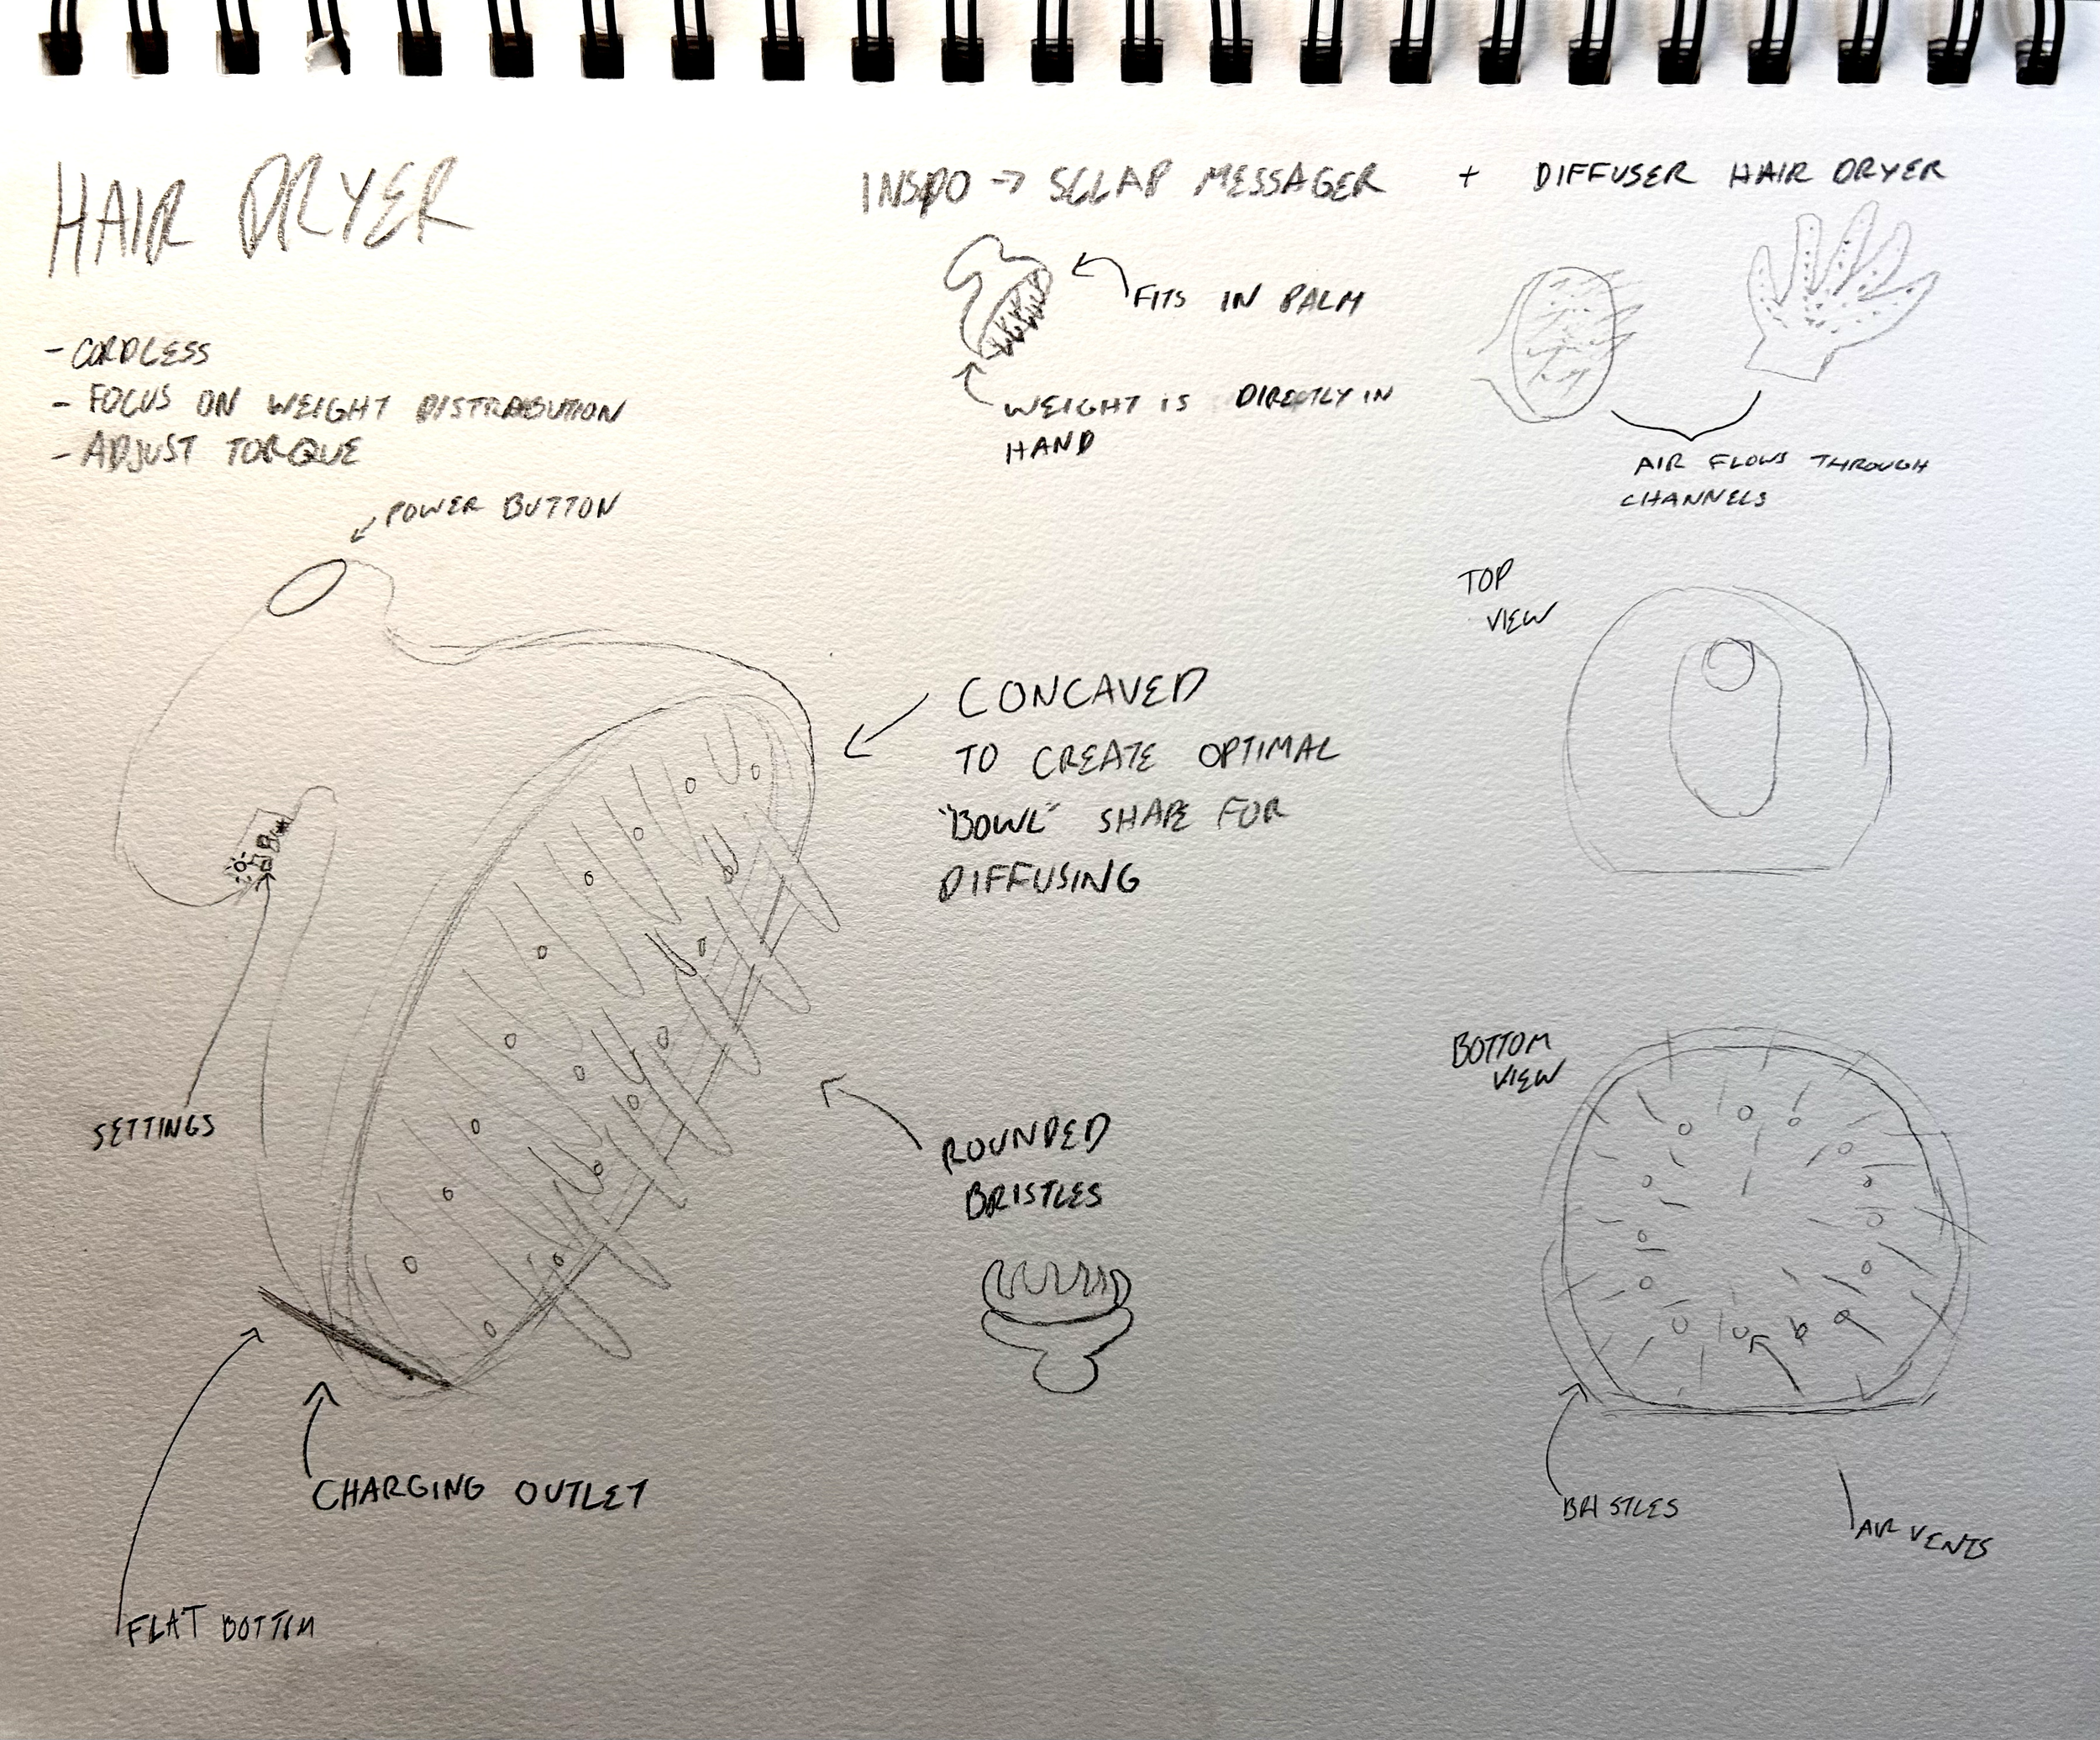 HAIR DRYER
INSPO → SCLAP MESSAGER + DIFFUSER HAIR DRYER
- CORDLESS
- FOCUS ON WEIGHT DISTRABUTION
- ADJUST TORQUE
FITS IN PALM
WEIGHT IS DIRECTLY IN
HAND
AIR FLOWS THROUGH
CHANNELS
POWER BUTTON
CONCAVED
TO CREATE OPTIMAL
"BOWL" SHAPE FOR
DIFFUSING
SETTINGS
ROUNDED
BRISTLES
CHARGING OUTLET
FLAT BOTTOM
TOP
VIEW
BOTTOM
VIEW
BRISTLES
AIR VENTS